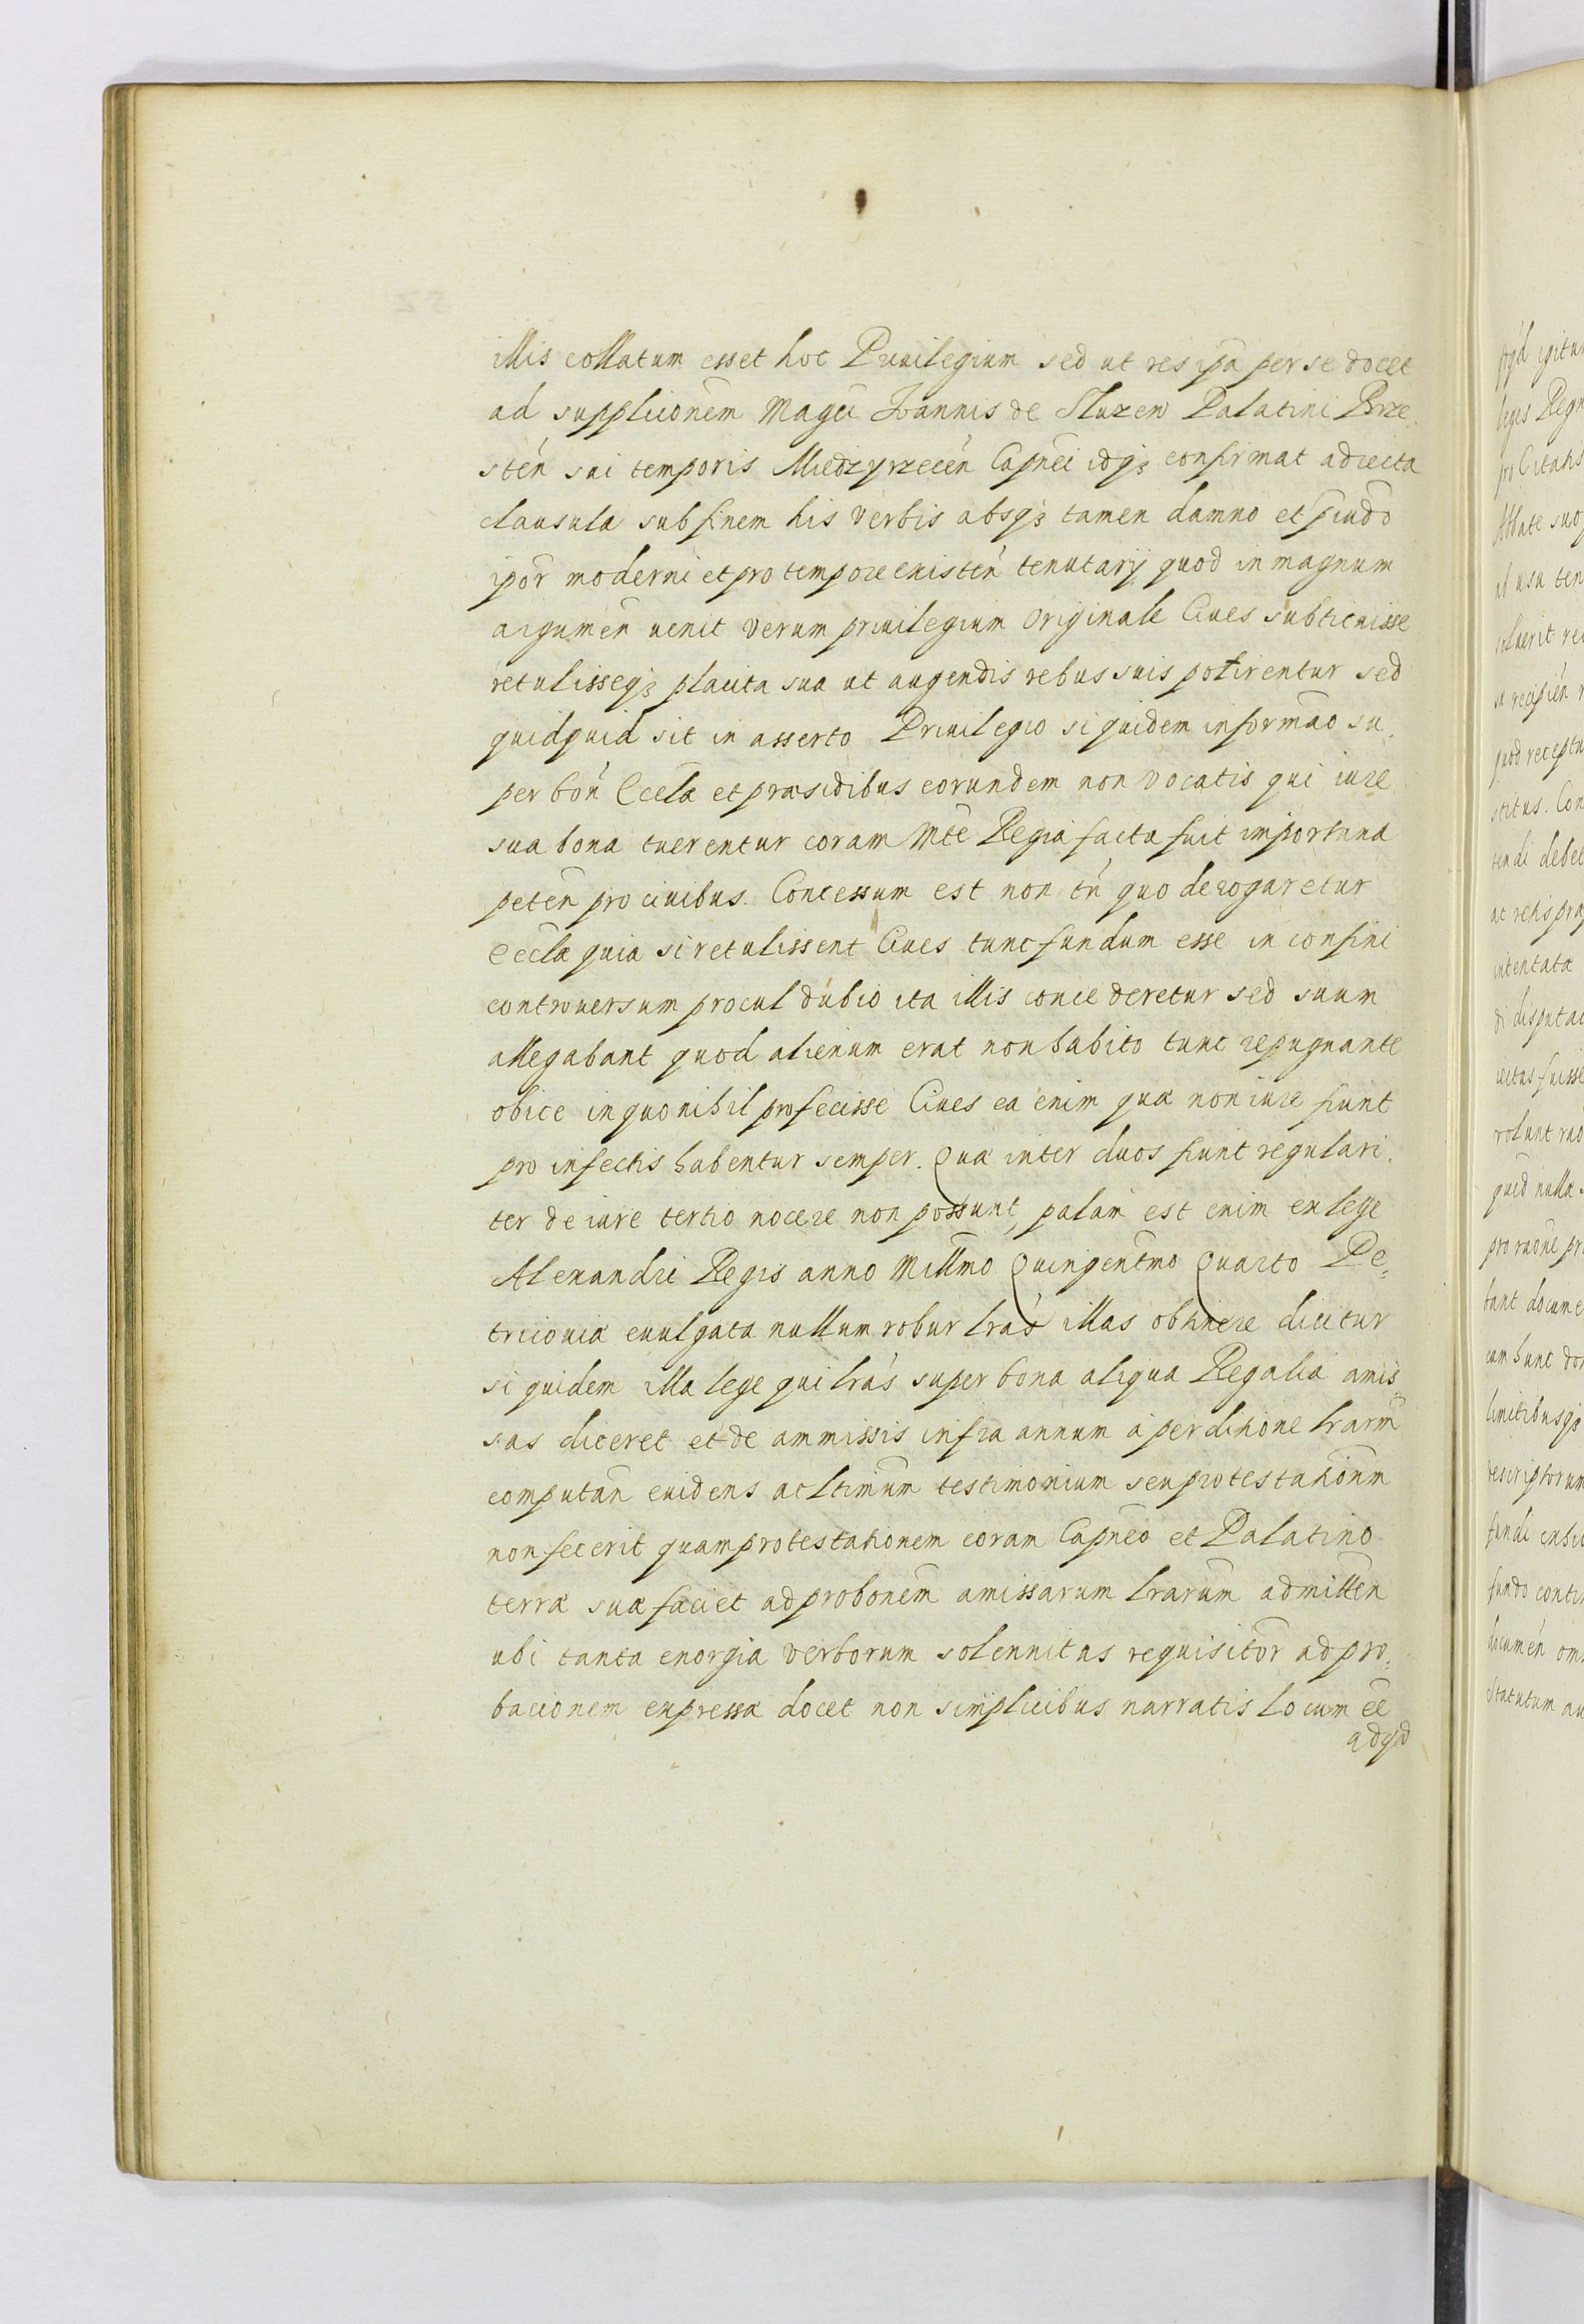 illis collatum esset hoc Privilegium sed ut res ipa per se docet
ad supplicionem Magci Joannis de Sluzew Palatini Brze
sten sui temporis Miedzyrzecen Capnei idqз confirmat adiecta
clausula sub finem his verbis absqз tamen damno et piudo
ipor moderni et pro tempore existen tenutarij quod in magnum
argumen uenit verum priuilegium originale Ciues subticuisse
retulisseqз placita sua ut augendis rebus suis potirentur sed
quidquid sit in asserto Priuilegio si quidem informao su
per bon Eccla et præsidibus eorundem non vocatis qui iure
sua bona tuerentur coram Mte Regia facta fuit importuna
peten pro ciuibus. Concessum est non tn quo derogaretur
Eccla quia si retulissent Ciues tunc fundum esse in confini
controuersum procul dubio ita illis concederetur sed suum
allegabant quod alienum erat non habito tunc repugnante
obice in quo nihil profecisse Ciues ea enim quæ non iure fiunt
pro infectis habentur semper. Quæ inter duos fiunt regulari
ter de iure tertio nocere non possunt, palam est enim ex lege
Alexandri Regis anno Millmo Quingentmo Quarto Pe=
tricouiæ euulgata nullum robur lras illas obtinere dicitur
si quidem illa lege qui lras super bona aliqua Regalia amis=
sas diceret et de ammissis infra annum à perditione lrarm
computan euidens ac ltimum testimonium seu protestationm
non fecerit quam protestationem coram Capneo et Palatino
terræ suæ faciet ad probonem amissarum lrarum admitten
ubi tanta energia verborum solennitas requisitor ad pro=
bacionem expressæ docet non simplicibus narratis locum ee
adqd